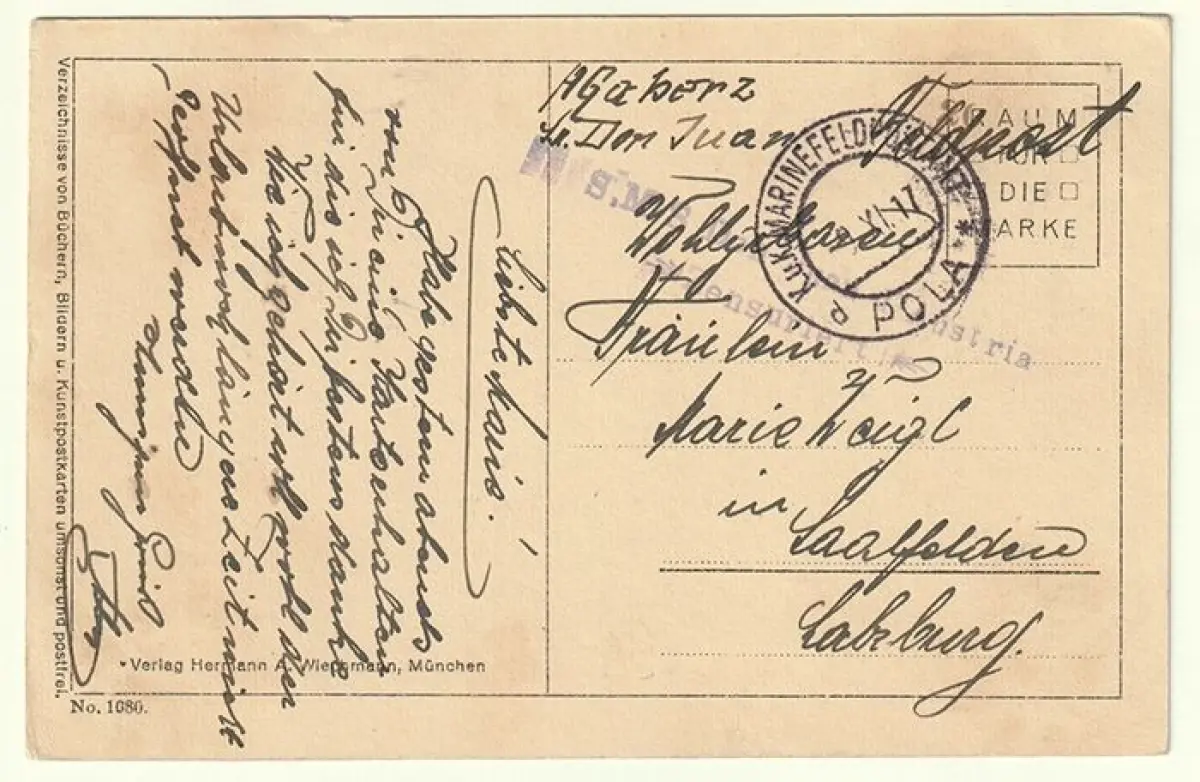 Verzeichnisse von Büchern, Bildern u. Kunstpostkarten umsonst und postfrei.
Liebste Marie!
Habe gestern abends
von Karte erhalten
für die ich dir bestens danke
Wie ich gehört wird wohl der
Urlaub noch längere Zeit nicht
geöffnet werden
Verlag Hermann A. Wiechmann, München
No. 1680.
AGaborz
Don Juan
Feldpost
RAUM
FÜR
DIE
MARKE
K.u.K. MARINEFELDPOSTAMT
XI 17
d POLA
S.M.
Austria
Zensuriert
Wohlgeboren
Fräulein
Marie Zeigl
in
Saalfelden
Salzburg.